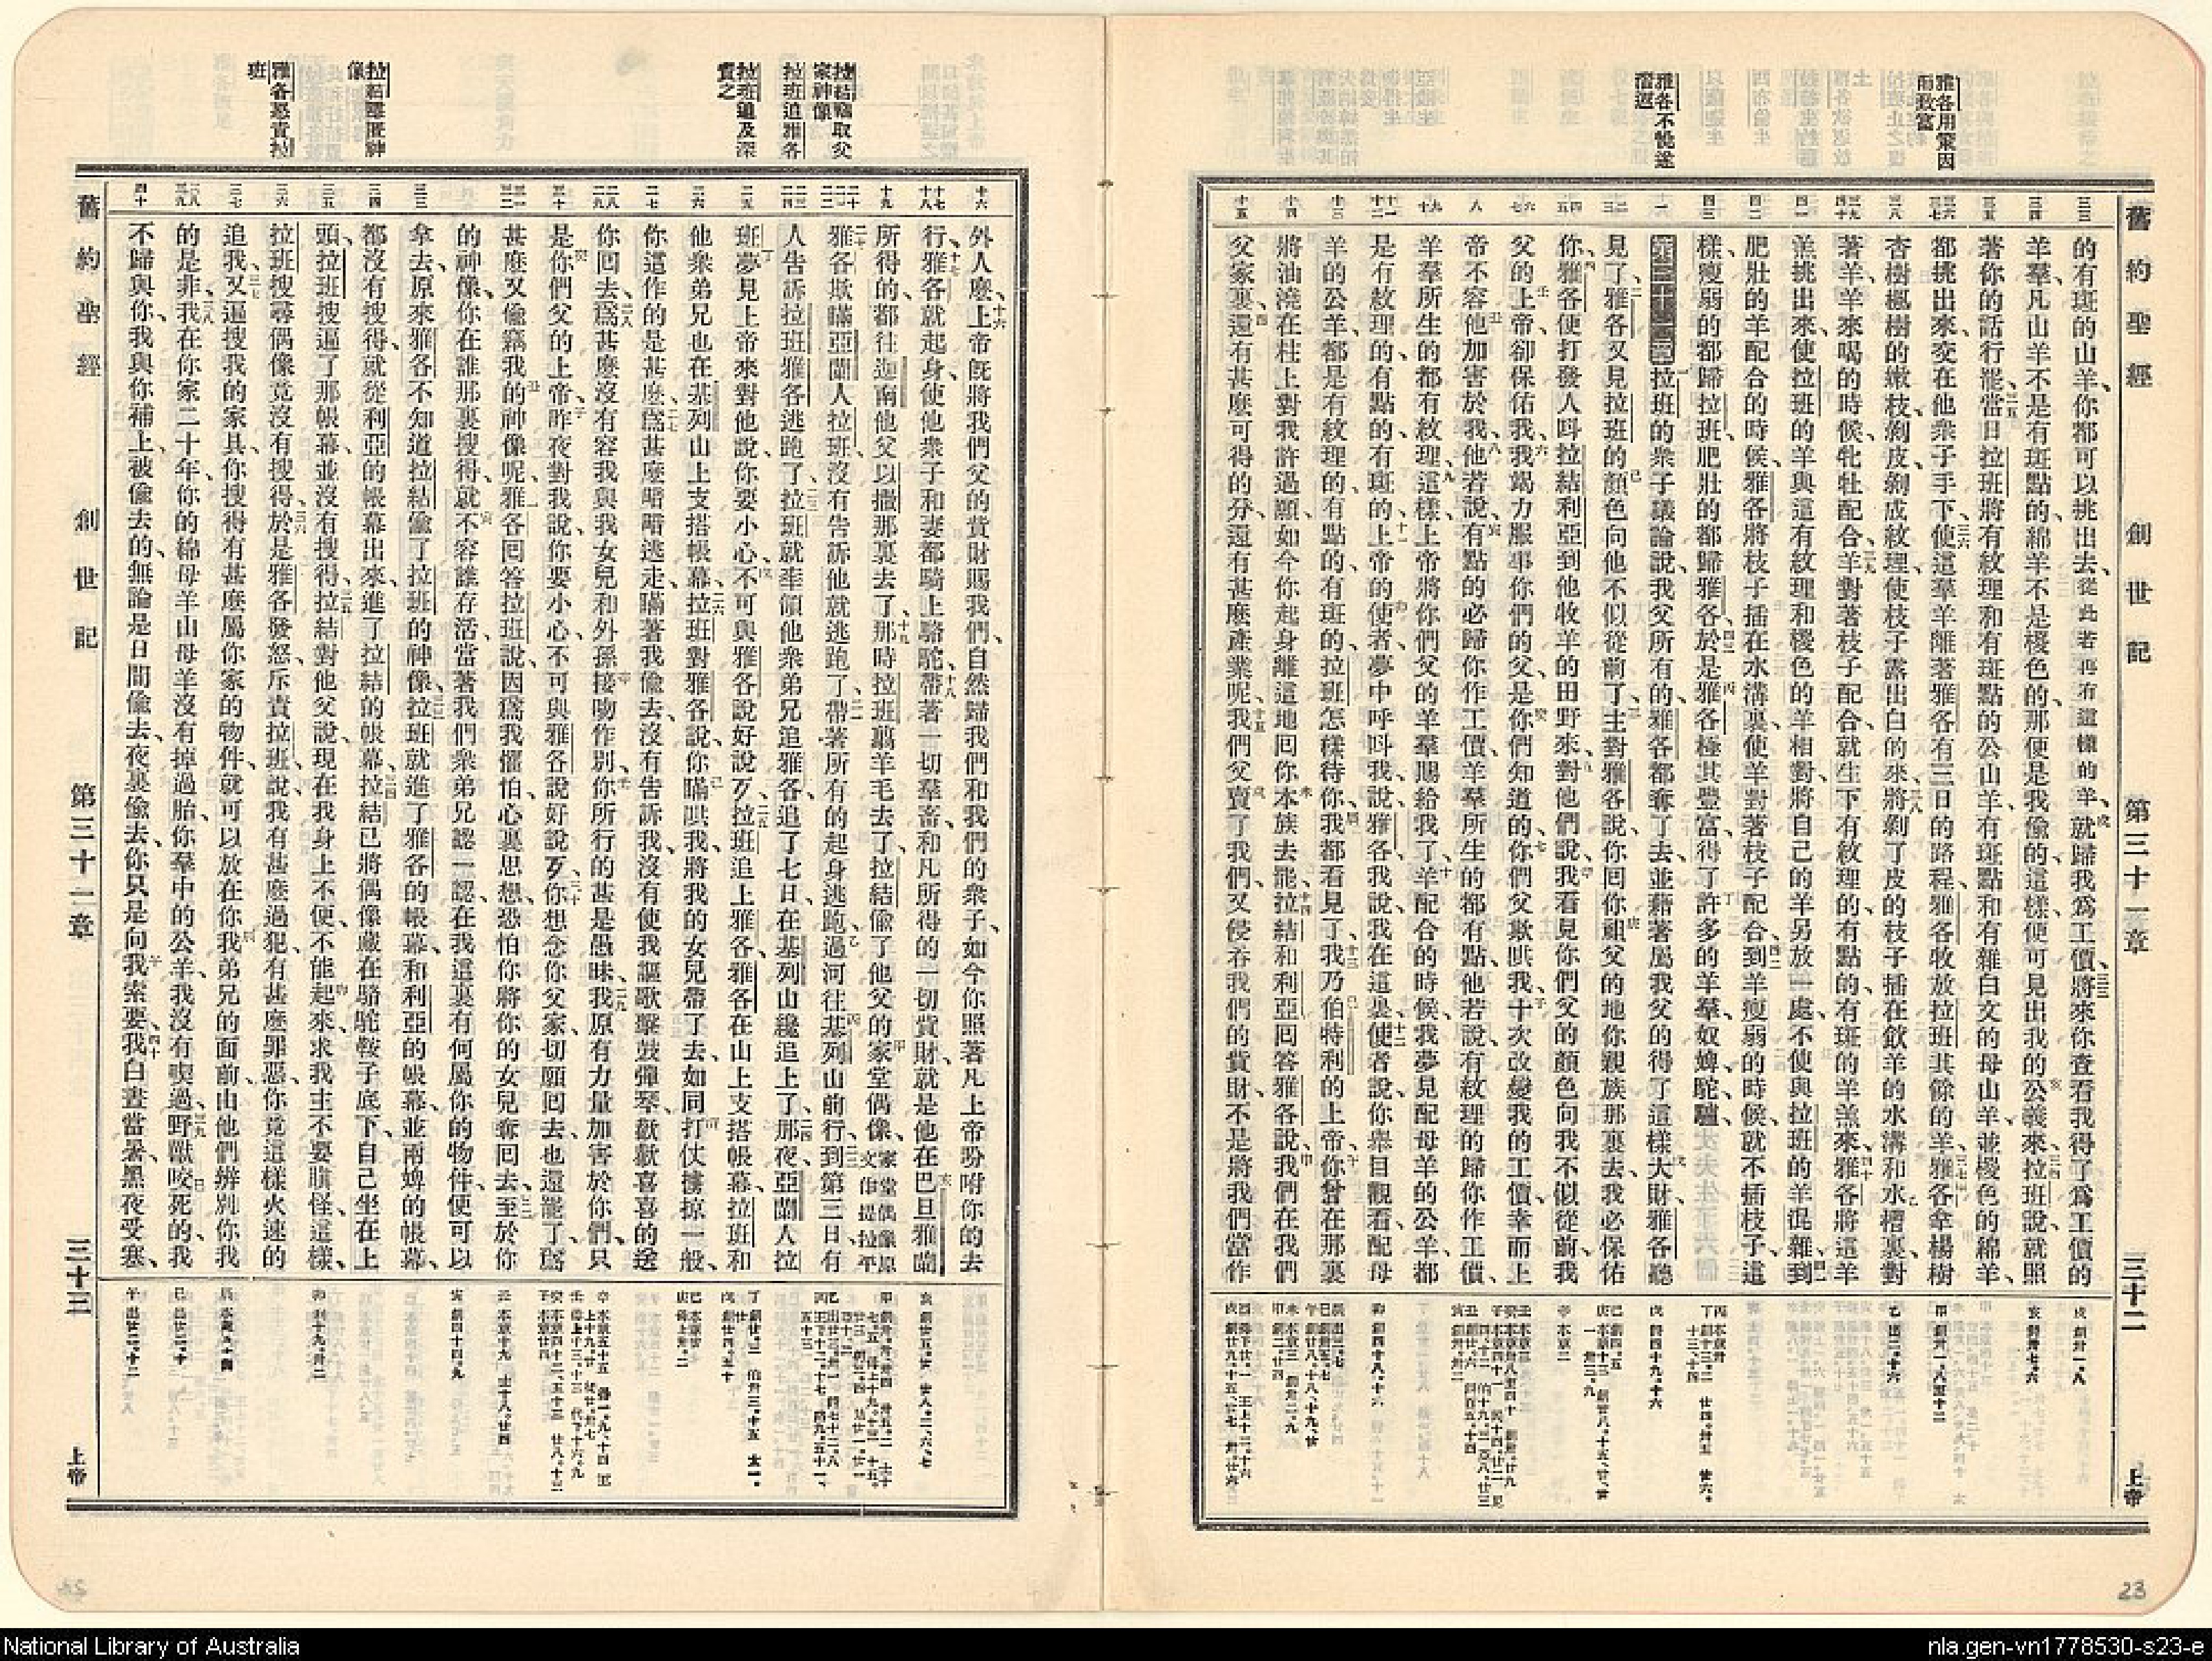 雅各用策因而致富
雅各不悅遂潛返
舊約聖經 創世記 第三十一章 三十二 上帝
的有斑的山羊、你都可以挑出去、從此若再有這樣的羊、就歸我爲工價、將來你查看我得了爲工價的
羊羣、凡山羊不是有斑點的、綿羊不是椶色的、那便是我偷的、這樣便可見出我的公義來、拉班說、就照
著你的話行罷、當日拉班將有紋理和有斑點的公山羊、有斑點和有雜白文的母山羊、並椶色的綿羊、
都挑出來、交在他衆子手下、使這羣羊離著雅各有三日的路程、雅各牧放拉班其餘的羊、雅各拿楊樹
杏樹楓樹的嫩枝、剝皮、剝成紋理、使枝子露出白的來、將剝了皮的枝子插在飲羊的水溝和水槽裏、對
著羊、羊來喝的時候、牝牡配合、羊對著枝子配合、就生下有紋理的、有點的、有斑的羊羔來、雅各將這羊
羔挑出來、使拉班的羊與這有紋理和椶色的羊相對、將自己的羊另放一處、不使與拉班的羊混雜、到
肥壯的羊配合的時候、雅各將枝子插在水溝裏、使羊對著枝子配合、到羊瘦弱的時候、就不插枝子、這
樣、瘦弱的都歸拉班、肥壯的都歸雅各、於是雅各極其豐富、得了許多的羊羣、奴婢、駝、驢、
第三十一章拉班的衆子議論說、我父所有的、雅各都奪了去、並藉著屬我父的、得了這樣大財、雅各聽
見了、雅各又見拉班的顏色向他不似從前了、主對雅各說、你回你祖父的地、你親族那裏去、我必保佑
你、雅各便打發人呌拉結利亞到他牧羊的田野來、對他們說、我看見你們父的顏色向我不似從前、我
父的上帝、卻保佑我、我竭力服事你們的父、是你們知道的、你們父欺哄我、十次改變我的工價、幸而上
帝不容他加害於我、他若說、有點的必歸你作工價、羊羣所生的都有點、他若說有紋理的歸你作工價、
羊羣所生的都有紋理、這樣上帝將你們父的羊羣賜給我了、羊配合的時候、我夢見配母羊的公羊、都
是有紋理的、有點的、有斑的、上帝的使者、夢中呼呌我、說雅各、我說我在這裏、使者說、你舉目觀看、配母
羊的公羊、都是有紋理的、有點的、有斑的、拉班怎樣待你、我都看見了、我乃伯特利的上帝、你曾在那裏
將油澆在柱上、對我許過願、如今你起身離這地回你本族去罷、拉結和利亞回答雅各說、我們在我們
父家裏、還有甚麽可得的分、還有甚麽產業呢、我們父賣了我們、又侵吞我們的貲財、不是將我們當作
拉結竊取父家神像
拉班追雅各
拉班追及深責之
拉結善匿神像
雅各怒責拉班
外人麽、上帝旣將我們父的貲財賜我們、自然歸我們和我們的衆子、如今你照著凡上帝吩咐你的去
行、雅各就起身、使他衆子和妻都騎上駱駝、帶著一切羣畜、和凡所得的一切貲財、就是他在巴旦雅蘭
所得的、都往迦南他父以撒那裏去了、那時拉班翦羊毛去了、拉結偷了他父的家堂偶像、家堂偶像原文作提拉平
雅各欺瞞亞蘭人拉班、沒有告訴他就逃跑了、帶著所有的起身逃跑、過河往基列山前行、到第三日、有
人告訴拉班、雅各逃跑了、拉班就率領他衆弟兄追雅各、追了七日、在基列山纔追上了、那夜、亞蘭人拉
班夢見上帝來對他說、你要小心、不可與雅各說好說歹、拉班追上雅各、雅各在山上支搭帳幕、拉班和
他衆弟兄也在基列山上支搭帳幕、拉班對雅各說、你瞞哄我、將我的女兒帶了去、如同打仗擄掠一般、
你這作的是甚麽、爲甚麽暗暗逃走、瞞著我偷去、沒有告訴我、沒有使我謳歌擊鼓彈琴、歡歡喜喜的送
你回去、爲甚麽沒有容我與我女兒和外孫接吻作別、你所行的甚是愚昧、我原有力量加害於你們、只
是你們父的上帝、昨夜對我說、你要小心、不可與雅各說好說歹、你想念你父家、切願回去、也還罷了、爲
甚麽又偷竊我的神像呢、雅各回答拉班說、因爲我懼怕、心裏思想、恐怕你將你的女兒奪回去、至於你
的神像、你在誰那裏搜得、就不容誰存活、當著我們衆弟兄認一認、在我這裏有何屬你的物件、便可以
拿去、原來雅各不知道拉結偷了拉班的神像、拉班就進了雅各的帳幕、和利亞的帳幕、並兩婢的帳幕、
都沒有搜得、就從利亞的帳幕出來、進了拉結的帳幕、拉結已將偶像藏在駱駝鞍子底下、自己坐在上
頭、拉班搜遍了那帳幕、並沒有搜得、拉結對他父說、現在我身上不便、不能起來、求我主不要瞋怪、這樣、
拉班搜尋偶像、竟沒有搜得、於是雅各發怒、斥責拉班說、我有甚麽過犯、有甚麽罪惡、你竟這樣火速的
追我、又遍搜我的家具、你搜得有甚麽屬你家的物件、就可以放在你我弟兄的面前、由他們辨別你我
的是非、我在你家二十年、你的綿母羊山母羊沒有掉過胎、你羣中的公羊、我沒有喫過、野獸咬死的、我
不歸與你、我與你補上、被偷去的、無論是日間偷去、夜裏偷去、你只是向我索要、我白晝當暑、黑夜受寒、
舊約聖經 創世記 第三十一章 三十三 上帝
23
National Library of Australia
nla.gen-vn1778530-s23-e